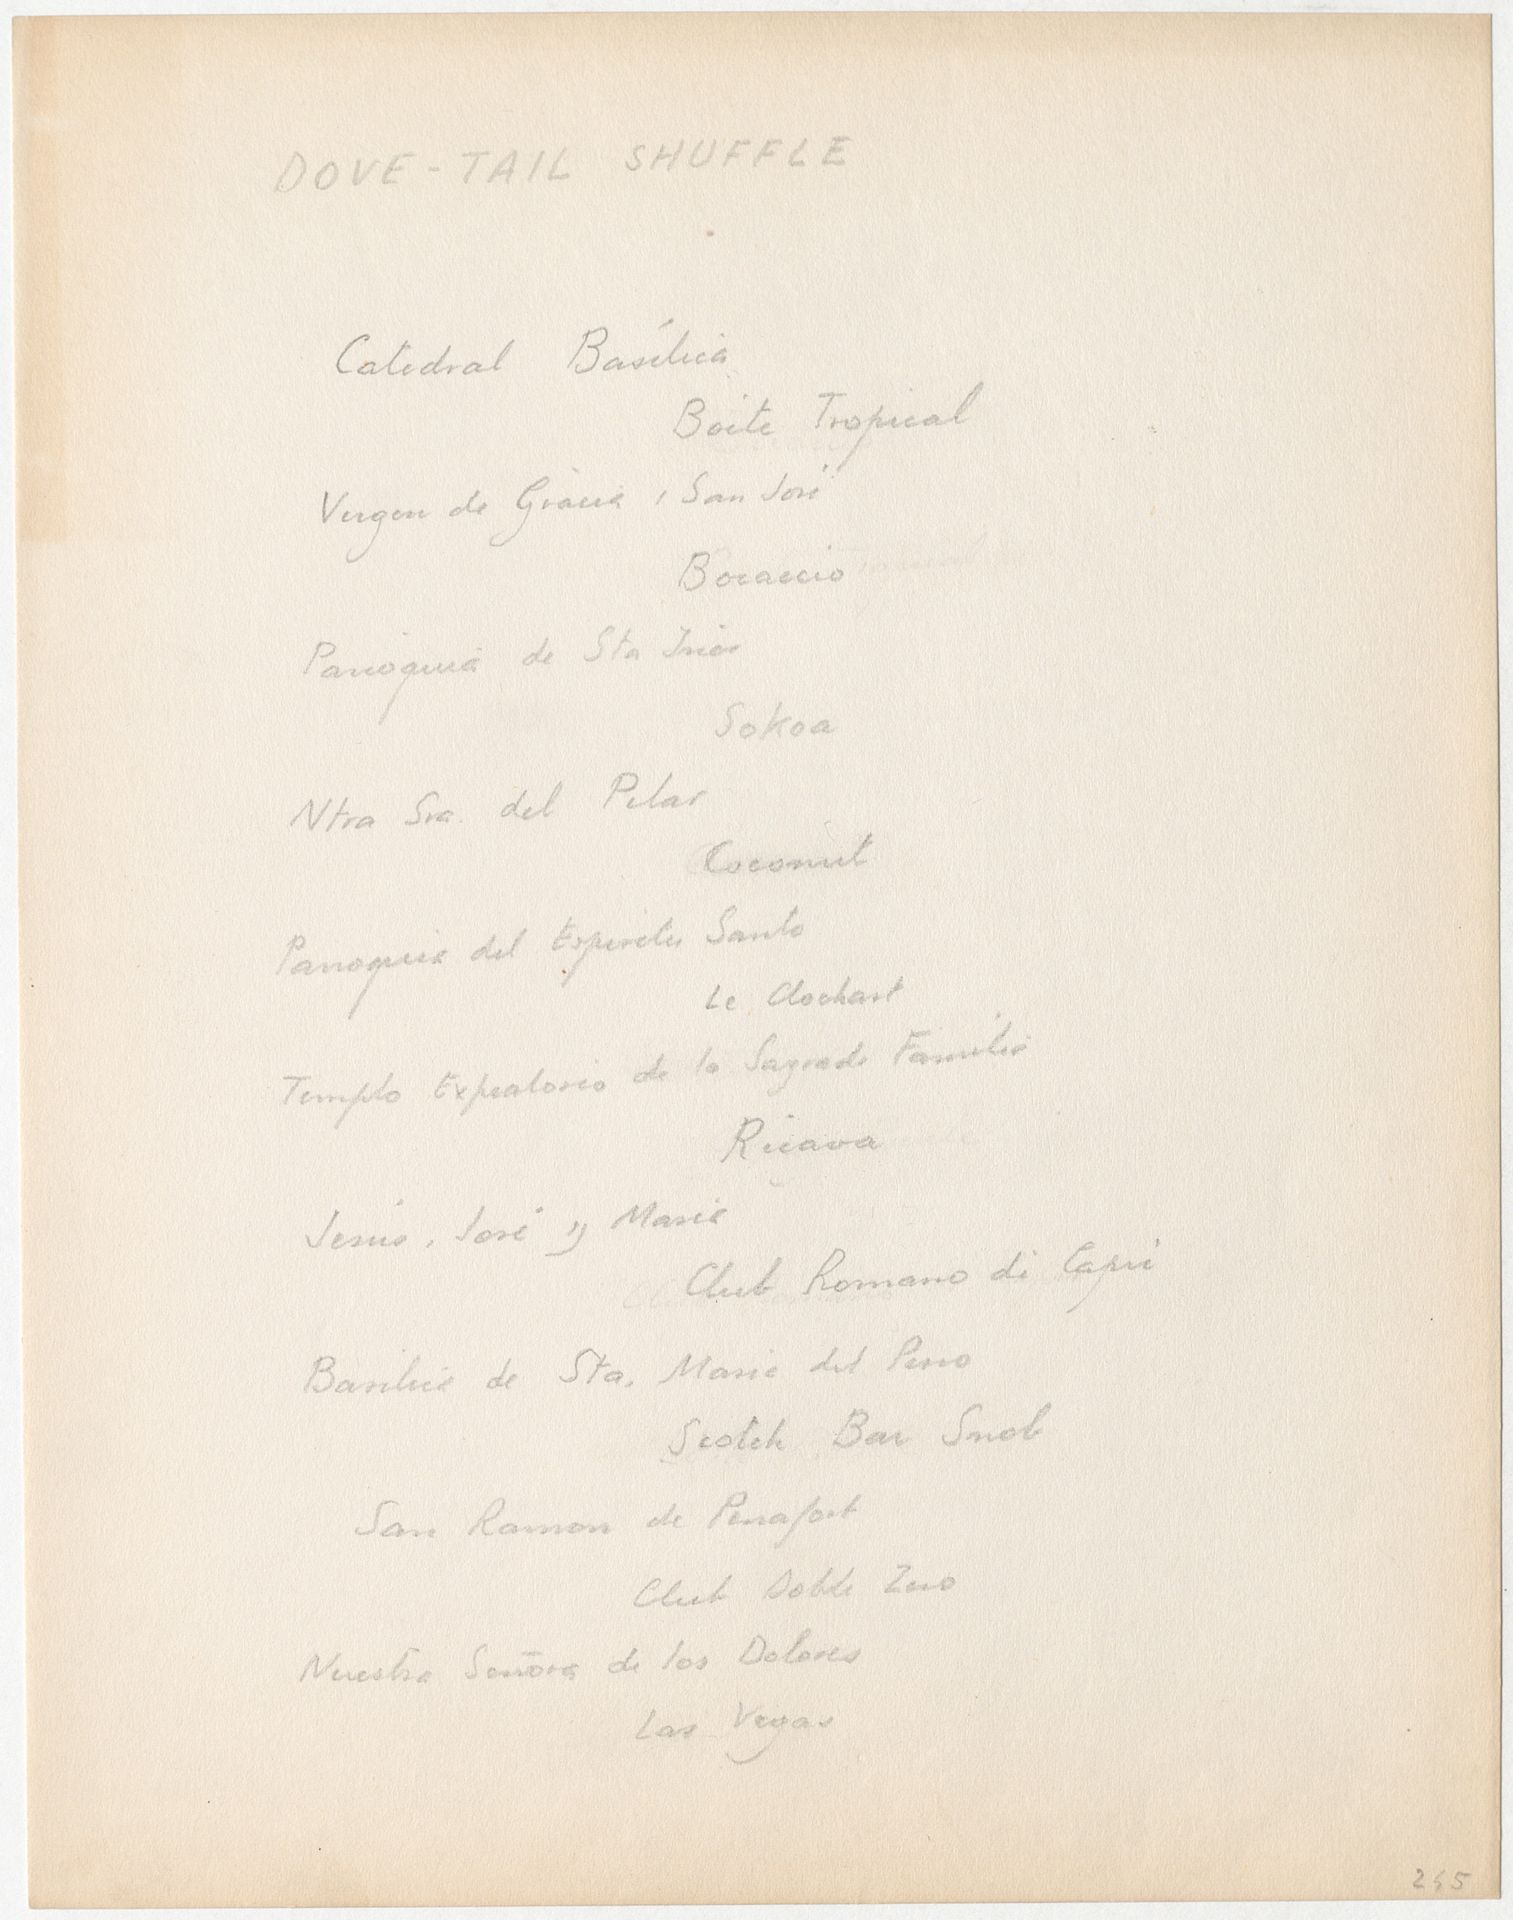 DOVE-TAIL SHUFFLE
Catedral Basílica
Boite Tropical
Vergen de Gràcia i San José
Bocaccio
Parròquia de Sta Inés
Sokoa
Ntra Sra. del Pilar
Coconut
Parroquia del Espiritu Santo
Le Clochart
Templo Expiatorio de la Sagrada Familia
Ricava
Jesús, José y Maria
Club Romano di Capri
Basilica de Sta. Maria del Pino
Scotch Bar Snob
San Ramon de Penafort
Club Doble Zero
Nuestra Señora de los Dolores
Las Vegas
245